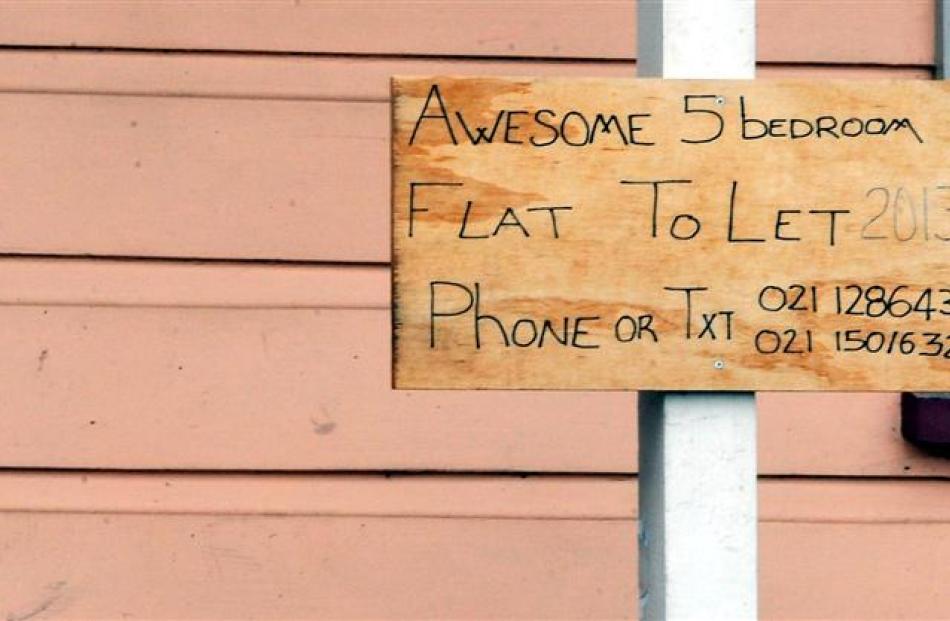 AWESOME 5 bEDROOM
FLAT TO LET 2013
PhONE OR TXT 021 128643
021 1501632